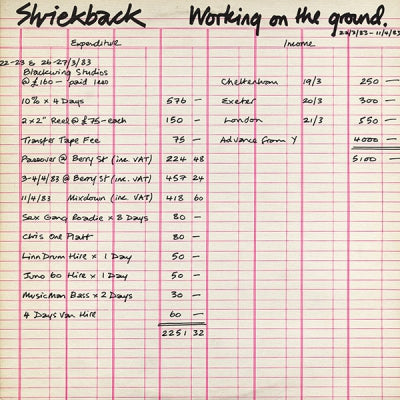 Shriekback Working on the ground.
22/3/83 - 11/4/83
Expenditure Income
22-23 & 26-27/3/83
Blackwing Studios
@ £160 — paid 1000
Cheltenham 19/3 250 —
10% x 4 Days 576 —
Exeter 20/3 300 —
2 x 2" Reel @ £75 - each 150 —
London 21/3 550 —
Transfer Tape Fee 75 —
Advance from Y 4000 —
Passover @ Berry St (inc. VAT) 224 48
5100 —
3-4/4/83 @ Berry St (inc. VAT) 457 24
11/4/83 Mixdown (inc. VAT) 418 60
Sex Gang Roadie x 3 Days 80 —
Chris One Platt 80 —
Linn Drum Hire x 1 Day 50 —
Juno 60 Hire x 1 Day 50 —
MusicMan Bass x 2 Days 30 —
4 Days Van Hire 60 —
2251 32